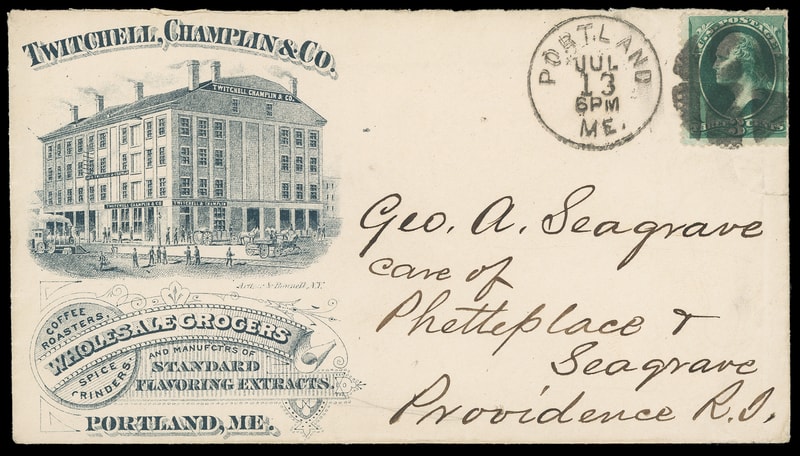 TWITCHELL, CHAMPLIN & CO.
TWITCHELL, CHAMPLIN & CO.
TWITCHELL, CHAMPLIN & CO
TWITCHELL & CHAMPLIN
COFFEE
ROASTERS,
WHOLESALE GROCERS
SPICE
GRINDERS.
AND MANUFCTRS OF
STANDARD
FLAVORING EXTRACTS.
PORTLAND, ME.
PORTLAND
JUL
13
6PM
ME.
U.S. POSTAGE
3
Geo. A. Seagrave
care of
Phetteplace &
Seagrave
Providence R.I.